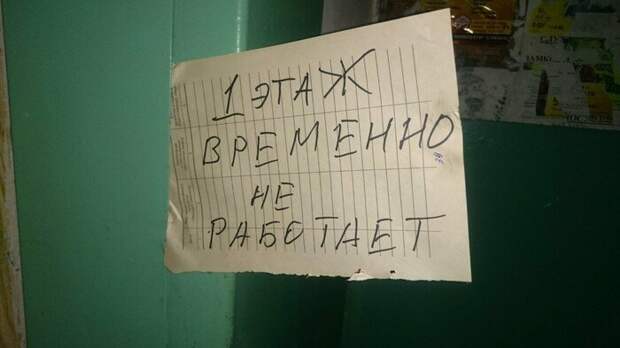 1 ЭТАЖ
ВРЕМЕННО
НЕ
РАБОТАЕТ